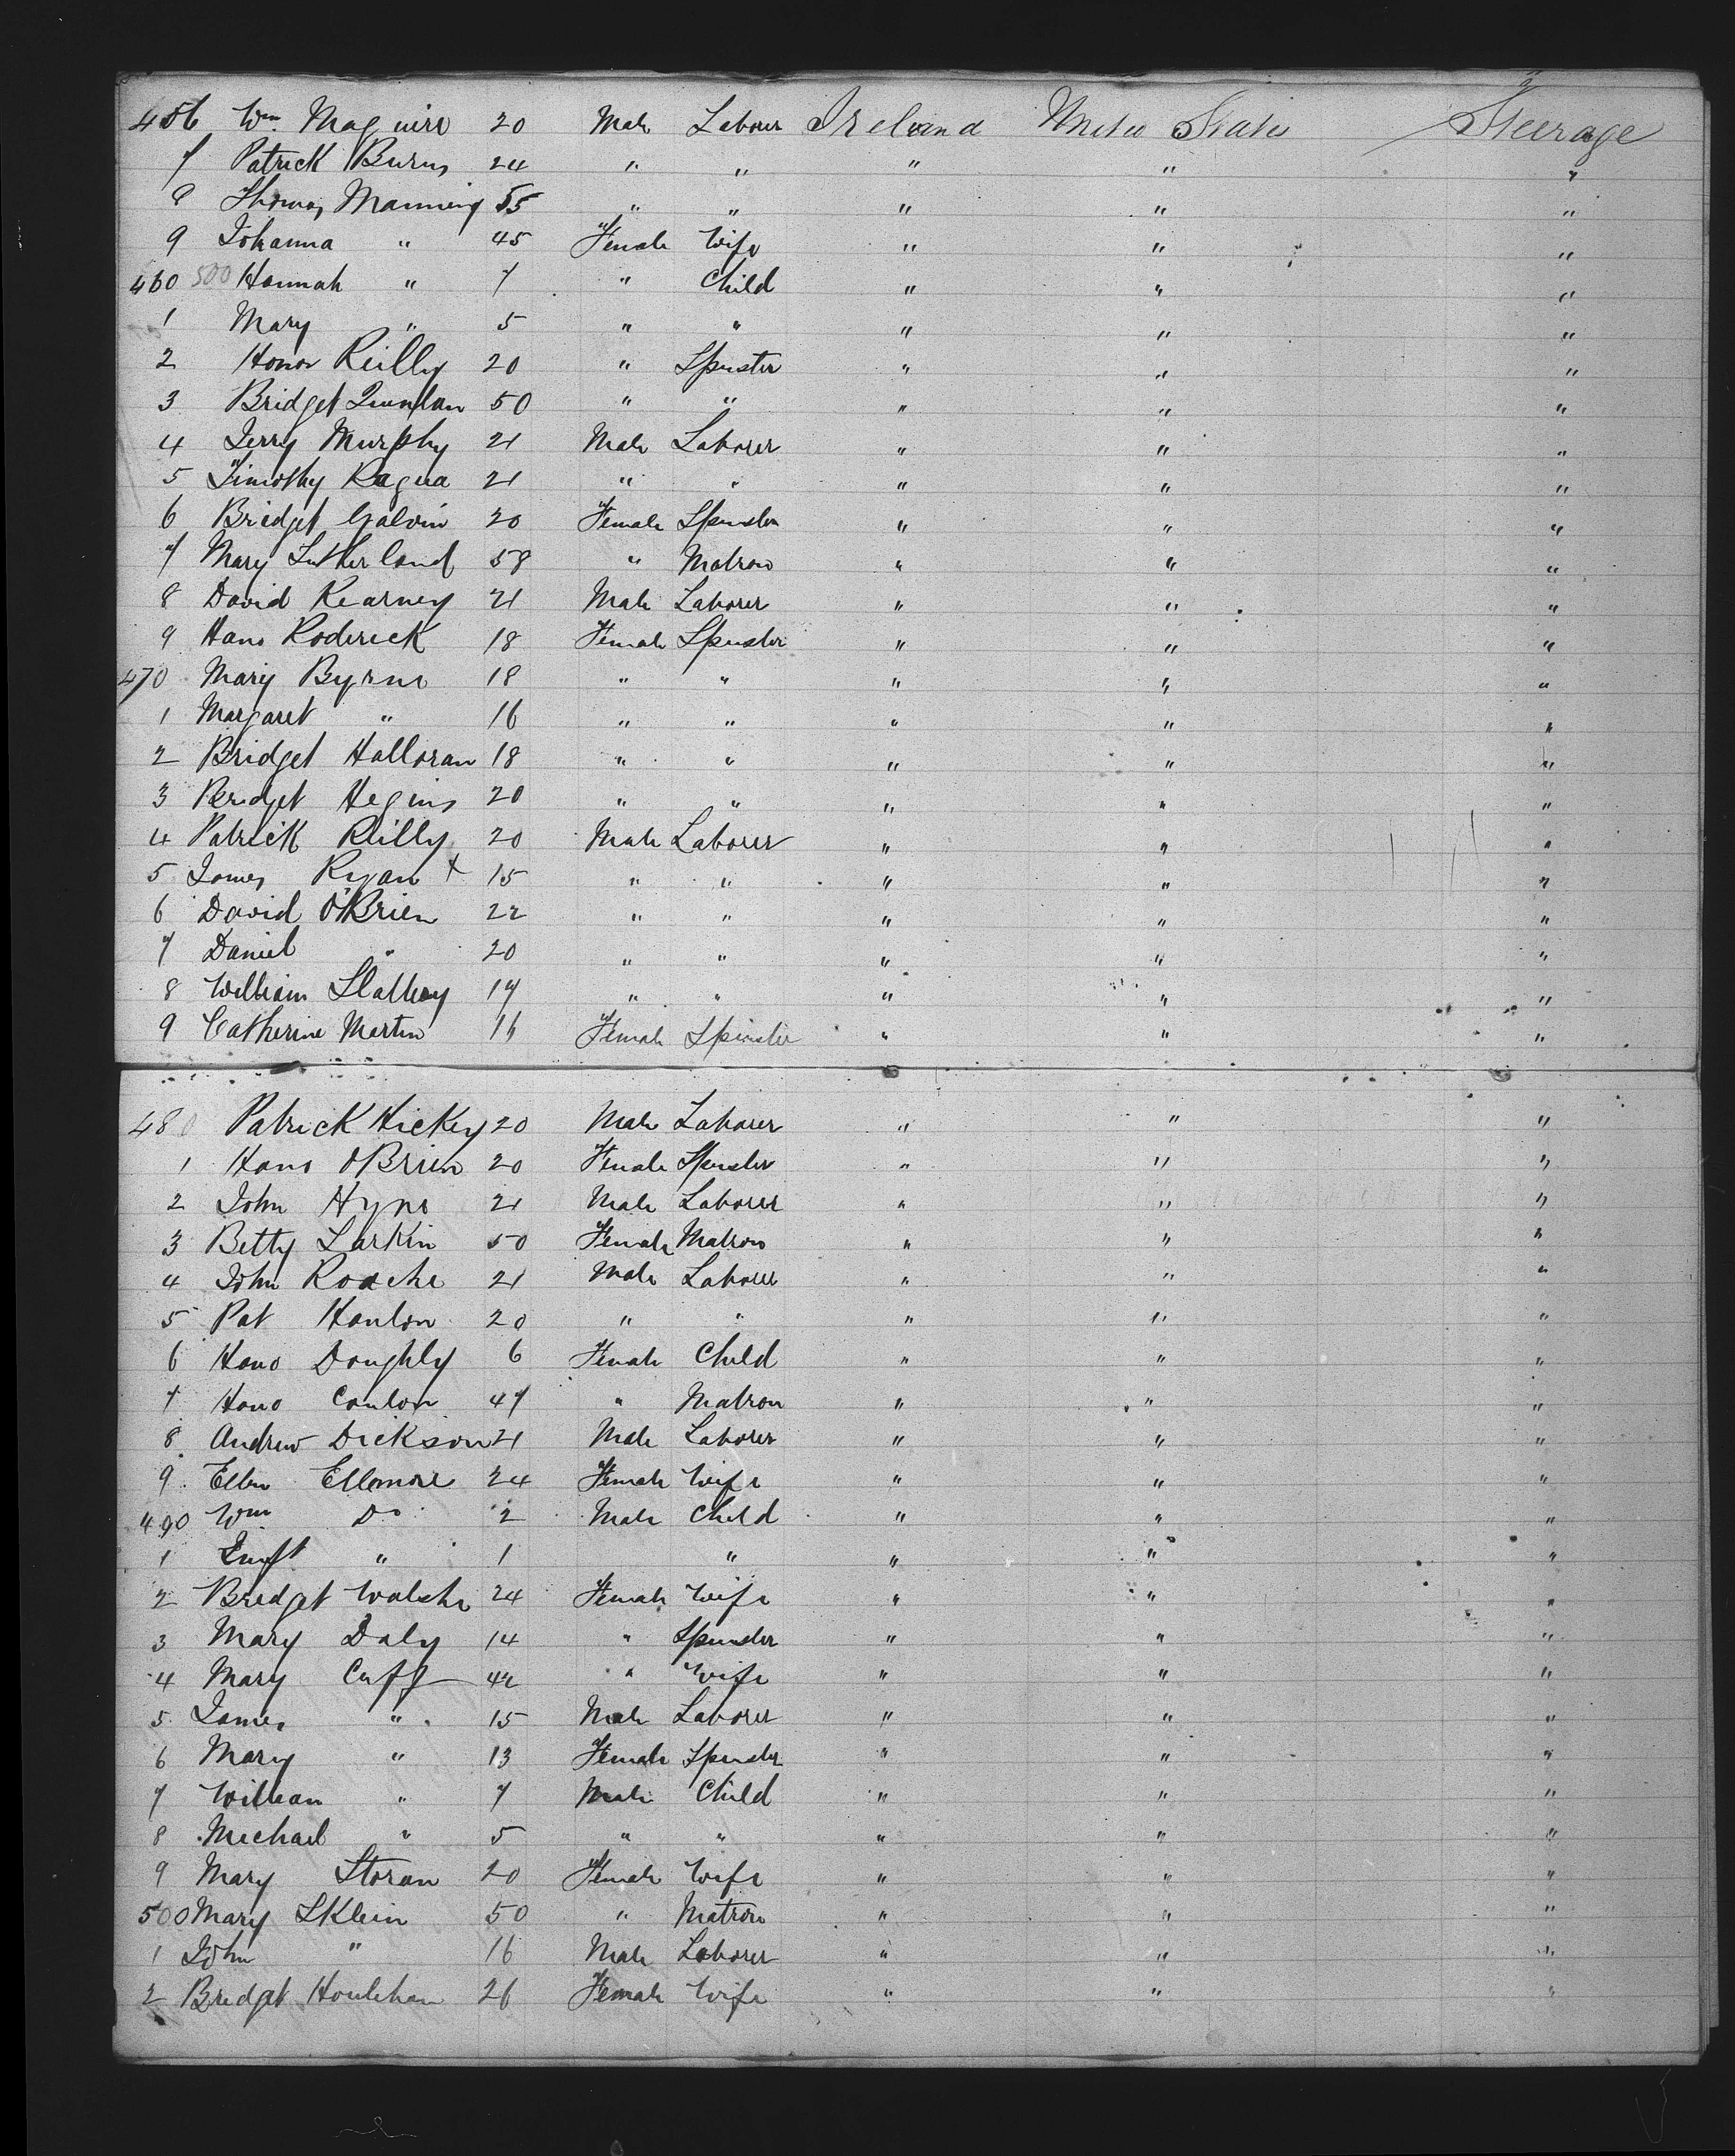 456 Wm. Maguire 20 Male Labour Ireland United States Steerage
7 Patrick Burns 24 " " " " "
8 Thomas Manning 55 " " " " "
9 Johanna " 45 Female Wife " " "
460 500 Hannah " 7 " Child " " "
1 Mary " 5 " " " " "
2 Honor Reilly 20 " Spinster " " "
3 Bridget Quinlan 50 " " " " "
4 Jerry Murphy 21 Male Laborer " " "
5 Timothy Ragua 21 " " " " "
6 Bridget Galvin 20 Female Spinster " " "
7 Mary Sutherland 58 " Matron " " "
8 David Kearney 21 Male Laborer " " "
9 Hano Roderick 18 Female Spinster " " "
470 Mary Byrne 18 " " " " "
1 Margaret " 16 " " " " "
2 Bridget Halloran 18 " " " " "
3 Bridget Hegins 20 " " " " "
4 Patrick Reilly 20 Male Laborer " " "
5 James Ryan X 15 " " " " "
6 David O'Brien 22 " " " " "
7 Daniel " 20 " " " " "
8 William Slattery 17 " " " " "
9 Catherine Martin 16 Female Spinster " " "
480 Patrick Hickey 20 Male Laborer " " "
1 Hano OBrien 20 Female Spinster " " "
2 John Hyne 21 Male Laborer " " "
3 Betty Larkin 50 Female Matron " " "
4 John Roache 21 Male Laborer " " "
5 Pat Hanlon 20 " " " " "
6 Hano Doughly 6 Female Child " " "
7 Hano Conlon 47 " Matron " " "
8 Andrew Dickson 21 Male Laborer " " "
9 Ellen Ellemore 24 Female Wife " " "
490 Wm Do 2 Male Child " " "
1 " 1 " " " "
2 Bridget Walshe 24 Female Wife " " "
3 Mary Daly 14 " Spinster " " "
4 Mary Cuff 42 " Wife " " "
5 James " 15 Male Laborer " " "
6 Mary " 13 Female Spinster " " "
7 William " 7 Male Child " " "
8 Michael " 5 " " " " "
9 Mary Storan 20 Female Wife " " "
500 Mary SKlein 50 " Matron " " "
1 John " 16 Male Laborer " " "
2 Bridget Houlehan 26 Female Wife " " "